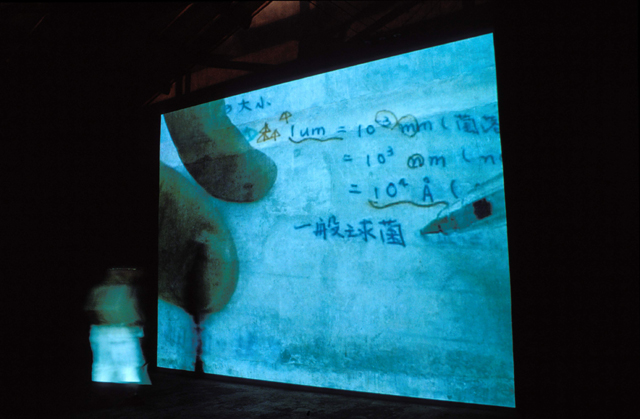 大小
1um = 10⁻³ mm (菌
= 10³ nm (n
= 10⁴ Å (
一般球菌